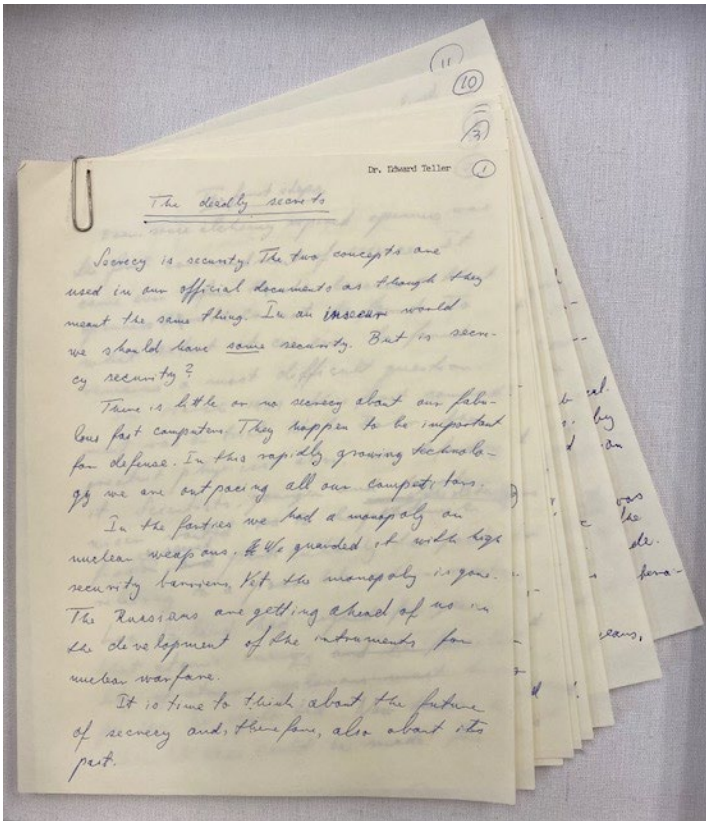 11
10
3
Dr. Edward Teller 1
The deadly secrets
Secrecy is security. The two concepts are
used in our official documents as though they
meant the same thing. In an insecure world
we should have some security. But is secre-
cy security?
There is little or no secrecy about our fabu-
lous fast computers. They happen to be important
for defense. In this rapidly growing technolo-
gy we are outpacing all our competitors.
In the forties we had a monopoly on
nuclear weapons. We guarded it with high
security barriers. Yet the monopoly is gone.
The Russians are getting ahead of us in
the development of the intruments for
nuclear warfare.
It is time to think about the future
of secrecy and, therefore, also about its
past.
cal.
by
was
the
de.
years,